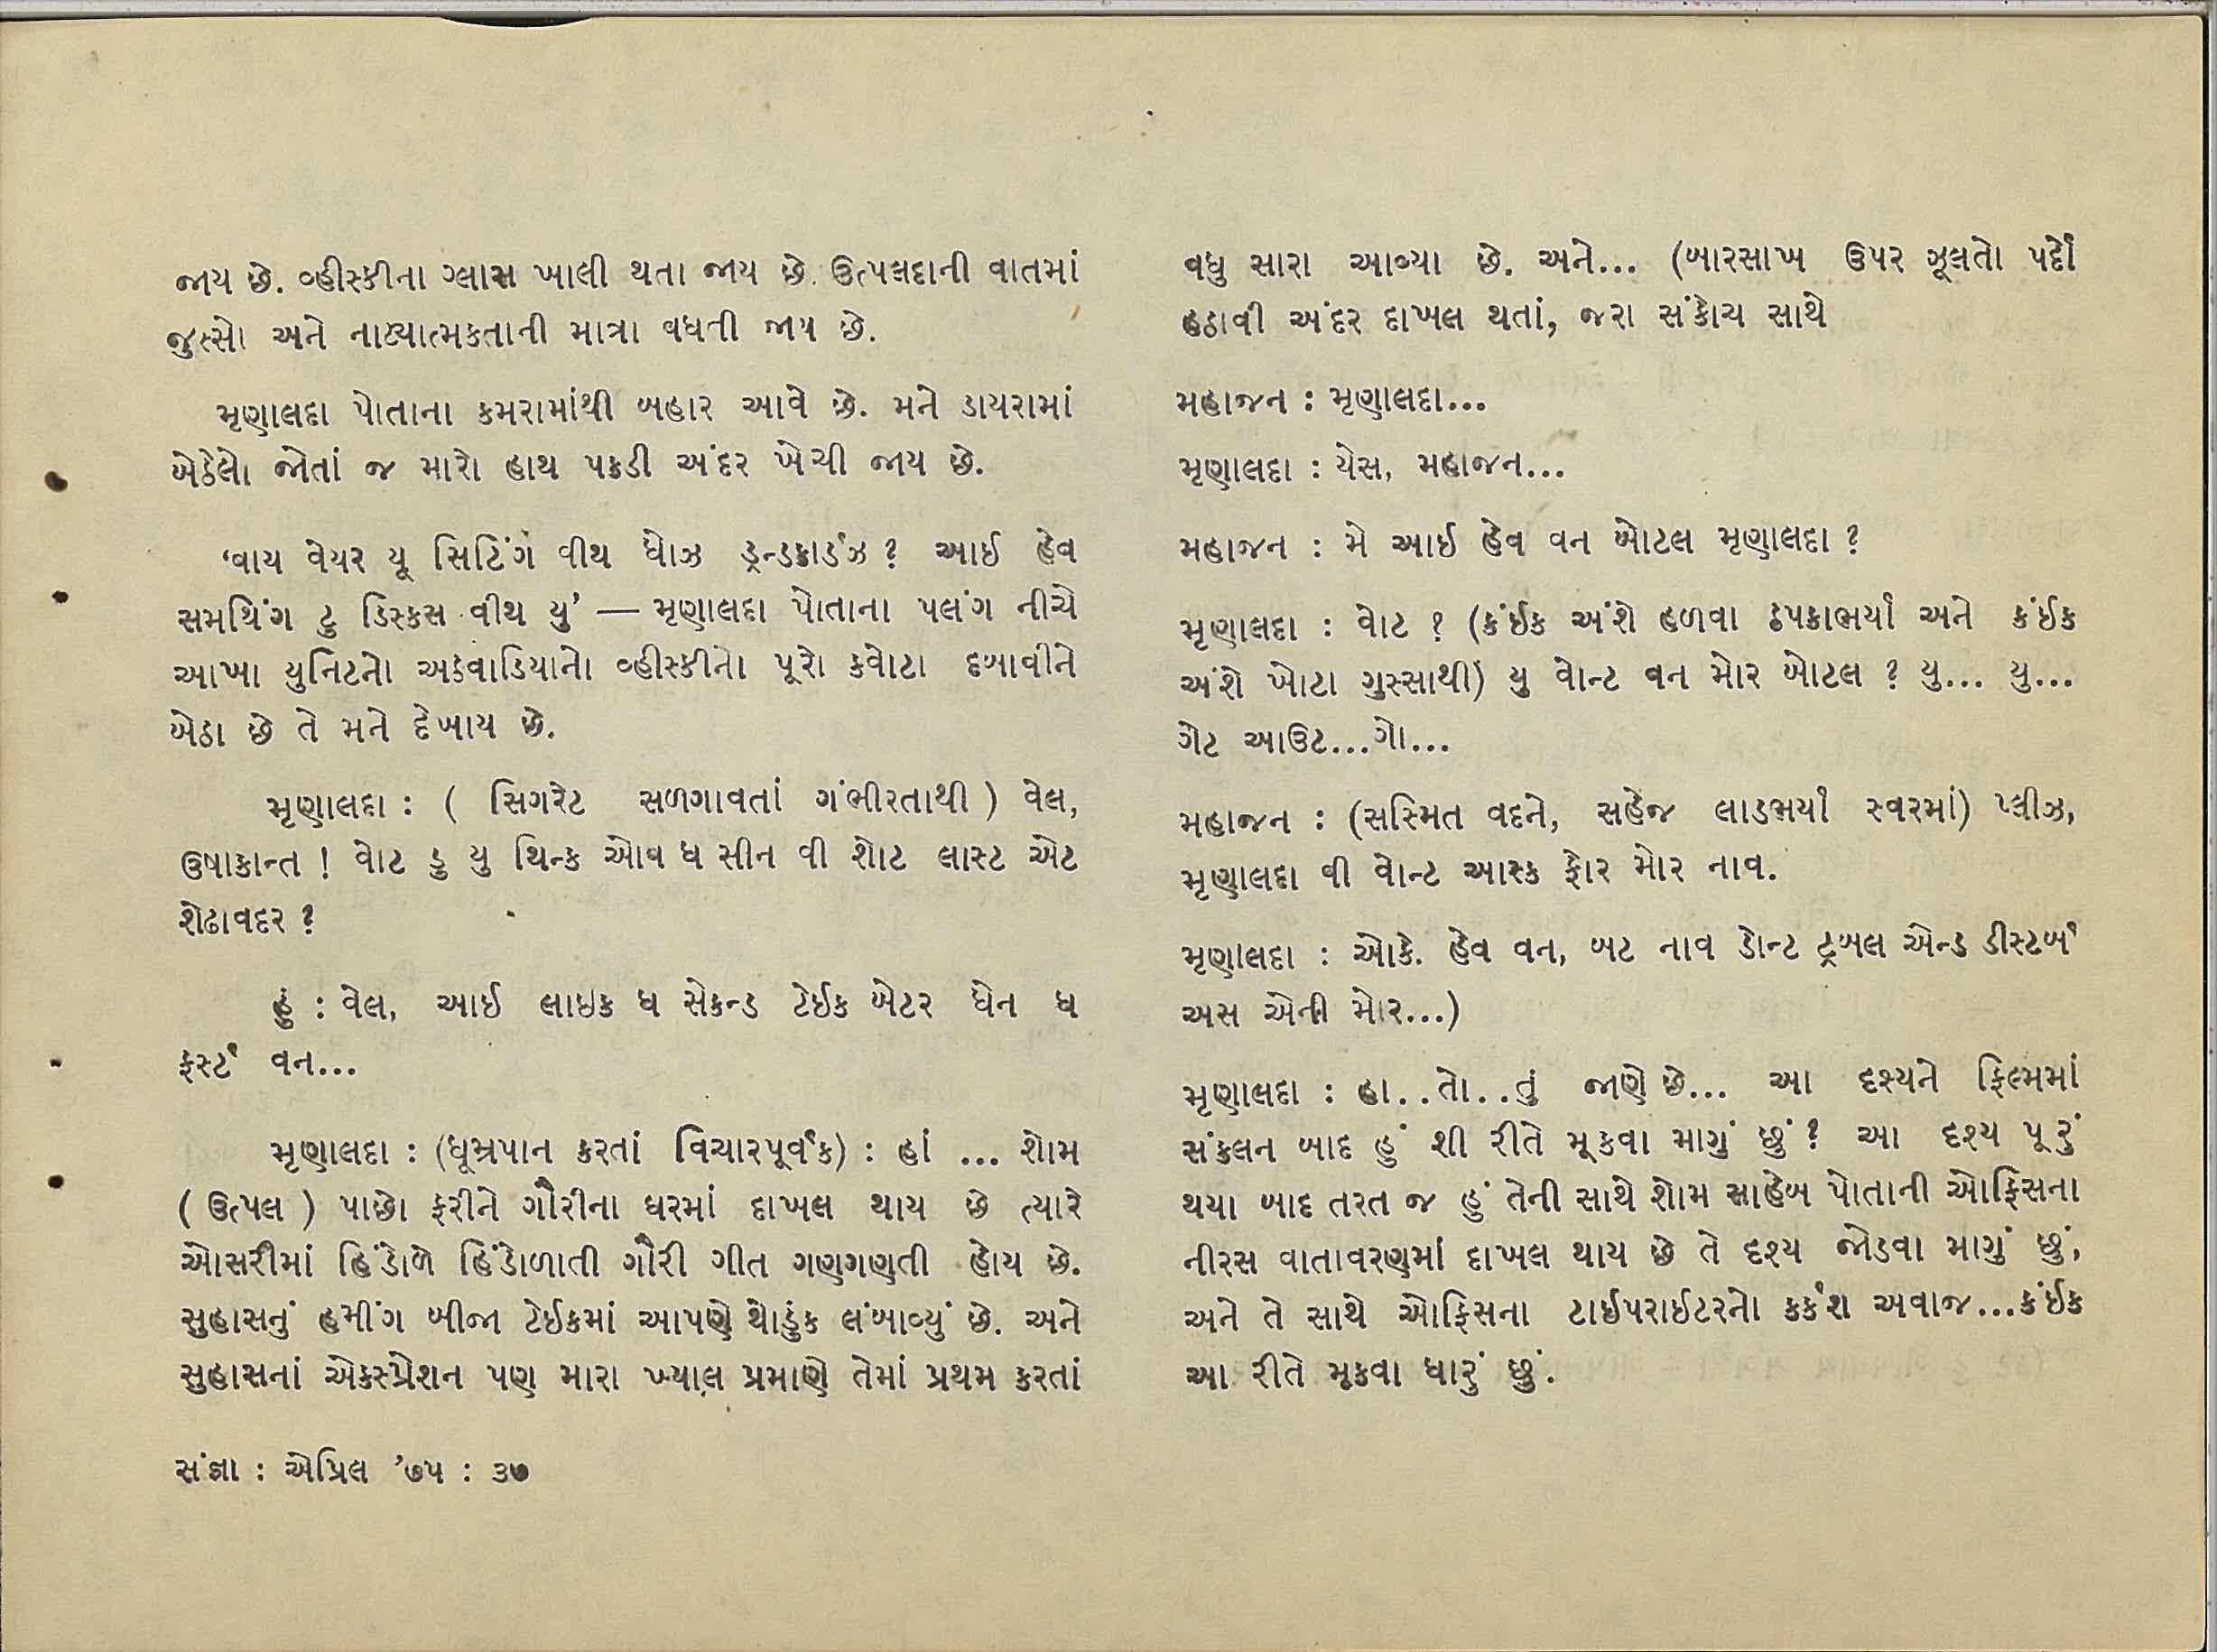 જાય છે. વ્હીસ્કીના ગ્લાસ ખાલી થતા જાય છે. ઉત્પલદાની વાતમાં
જુસ્સો અને નાટ્યાત્મકતાની માત્રા વધતી જાય છે.
મૃણાલદા પોતાના કમરામાંથી બહાર આવે છે. મને ડાયરામાં
બેઠેલો જોતાં જ મારો હાથ પકડી અંદર ખેંચી જાય છે.
‘વાય વેયર યૂ સિટિંગ વીથ ધોઝ ડ્રન્ડકાર્ડઝ ? આઈ હેવ
સમથિંગ ટુ ડિસ્કસ વીથ યુ’ — મૃણાલદા પોતાના પલંગ નીચે
આખા યુનિટનો અઠવાડિયાનો વ્હીસ્કીનો પૂરો કવોટા દબાવીને
બેઠા છે તે મને દેખાય છે.
મૃણાલદા : ( સિગરેટ સળગાવતાં ગંભીરતાથી ) વેલ,
ઉષાકાન્ત ! વોટ ડુ યુ થિન્ક ઓવ ધ સીન વી શોટ લાસ્ટ એટ
શેઢાવદર ?
હું : વેલ, આઈ લાઇક ધ સેકન્ડ ટેઈક બેટર ધેન ધ
ફર્સ્ટ વન...
મૃણાલદા : (ધૂમ્રપાન કરતાં વિચારપૂર્વક) : હાં ... શોમ
( ઉત્પલ ) પાછો ફરીને ગૌરીના ઘરમાં દાખલ થાય છે ત્યારે
ઓસરીમાં હિંડોળે હિંડોળાતી ગૌરી ગીત ગણગણતી હોય છે.
સુહાસનું હમીંગ બીજા ટેઈકમાં આપણે થોડુંક લંબાવ્યું છે. અને
સુહાસનાં એક્સ્પ્રેશન પણ મારા ખ્યાલ પ્રમાણે તેમાં પ્રથમ કરતાં
સંજ્ઞા : એપ્રિલ ’૭૫ : ૩૭
વધુ સારા આવ્યા છે. અને... (બારસાખ ઉપર ઝૂલતો પર્દો
હઠાવી અંદર દાખલ થતાં, જરા સંકોચ સાથે
મહાજન : મૃણાલદા...
મૃણાલદા : યેસ, મહાજન...
મહાજન : મે આઈ હેવ વન બોટલ મૃણાલદા ?
મૃણાલદા : વોટ ? (કંઈક અંશે હળવા ઠપકાભર્યા અને કંઈક
અંશે ખોટા ગુસ્સાથી) યુ વોન્ટ વન મોર બોટલ ? યુ... યુ...
ગેટ આઉટ...ગો...
મહાજન : (સસ્મિત વદને, સહેજ લાડભર્યા સ્વરમાં) પ્લીઝ,
મૃણાલદા વી વોન્ટ આસ્ક ફોર મોર નાવ.
મૃણાલદા : ઓકે. હેવ વન, બટ નાવ ડોન્ટ ટ્રબલ એન્ડ ડીસ્ટર્બ
અસ એની મોર...)
મૃણાલદા : હા..તો..તું જાણે છે... આ દૃશ્યને ફિલ્મમાં
સંકલન બાદ હું શી રીતે મૂકવા માગું છું ? આ દૃશ્ય પૂરું
થયા બાદ તરત જ હું તેની સાથે શોમ સાહેબ પોતાની ઓફિસના
નીરસ વાતાવરણમાં દાખલ થાય છે તે દૃશ્ય જોડવા માગું છું,
અને તે સાથે ઓફિસના ટાઈપરાઈટરનો કર્કશ અવાજ...કંઈક
આ રીતે મૂકવા ધારું છું.